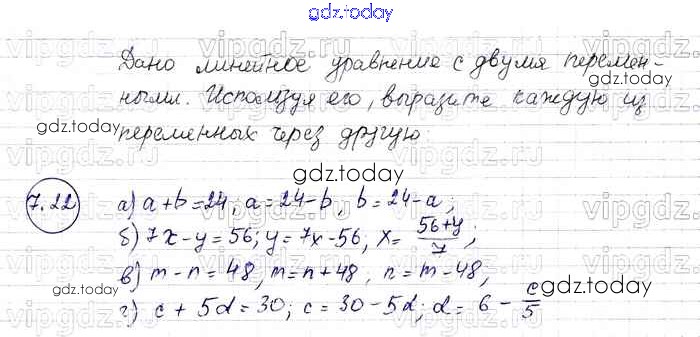 gdz.today
Дано линейное уравнение с двумя перемен-
ными. Используя его, выразите каждую из
gdz.today
gdz.today
переменных через другую.
gdz.today
7.22
а) a+b=24, a=24-b, b=24-a;
б) 7x-y=56; y=7x-56, x= \frac{56+y}{7};
в) m-n=48, m=n+48, n=m-48,
gdz.today
gdz.today
г) c+5d=30; c=30-5d; d=6-\frac{c}{5}